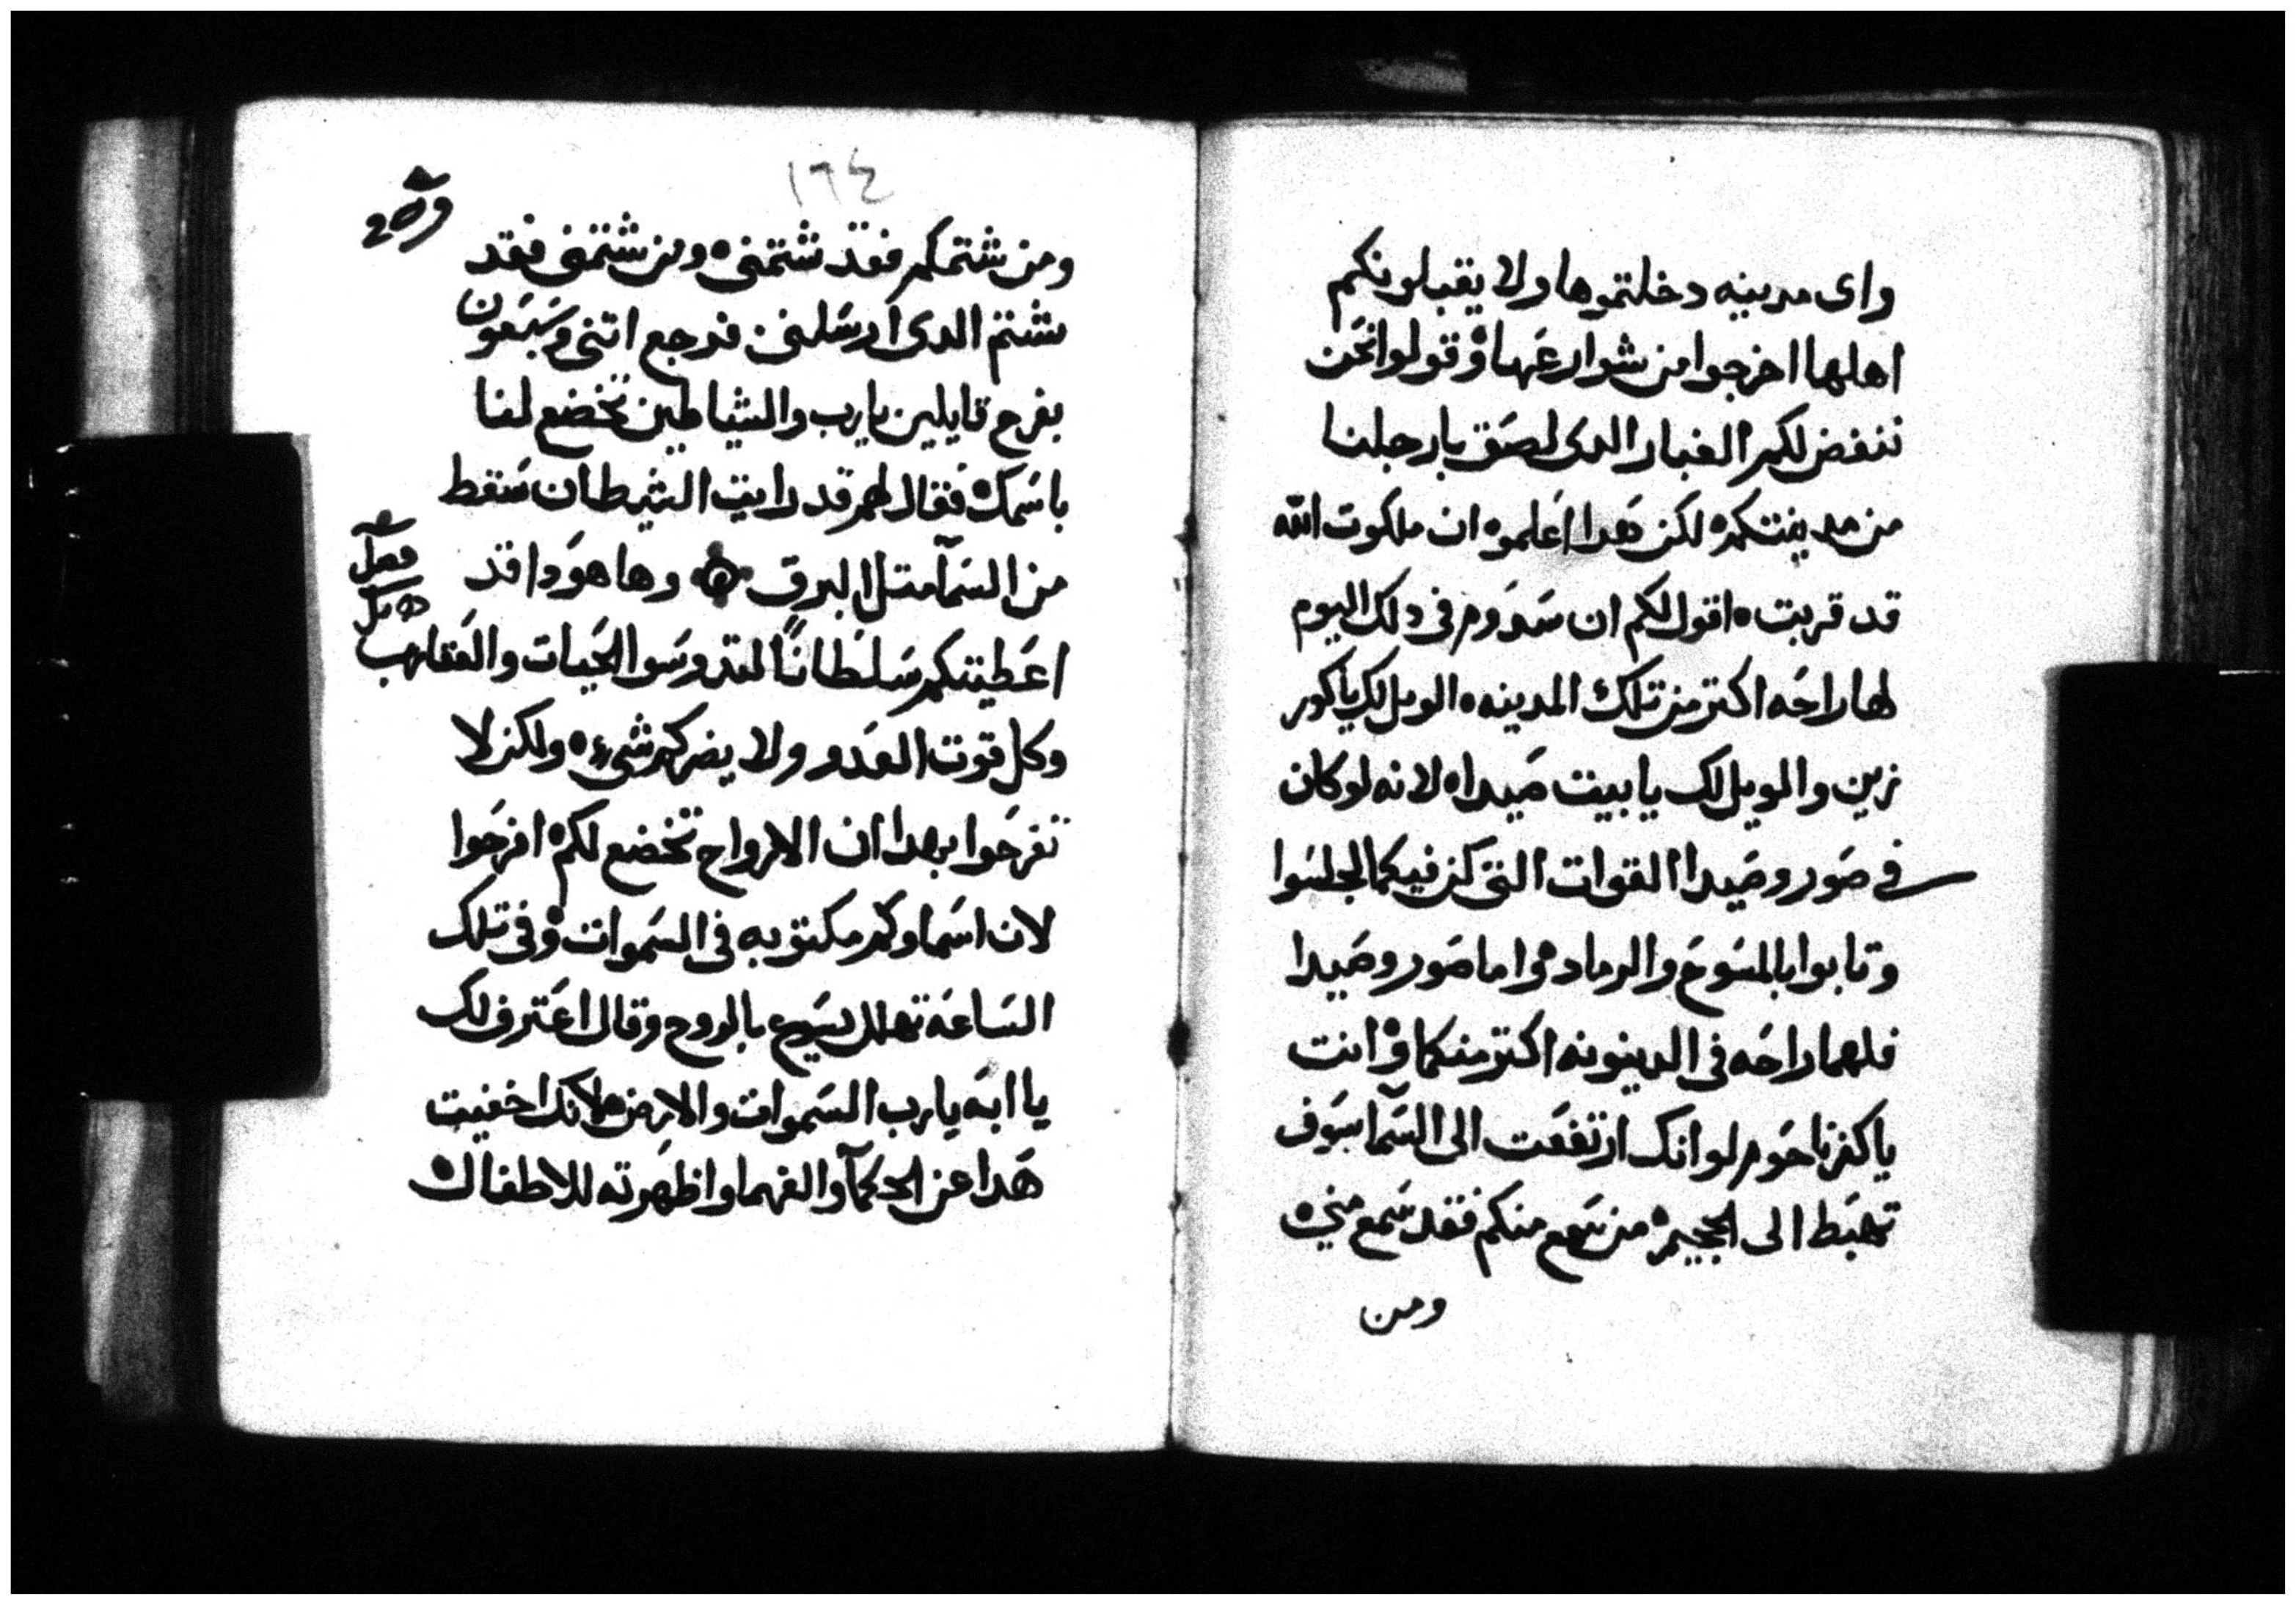 واى مدينه دخلتموها ولا يقبلونكم
اهلها اخرجوا من شوارعها وقولوا نحن
ننفض لكم الغبار الدى لصق بارجلنا
من مدينتكم لكن هدا اعلموه ان ملكوت الله
قد قربت اقول لكم ان سدوم فى دلك اليوم
لها راحه اكتر من تلك المدينه الويل لك ياكور
زين والويل لك يا بيت صيدا لانه لو كان
فى صور وصيدا القوات التى كن فيكما لجلسوا
وتابوا بالمسوح والرماد واما صور وصيدا
فلهما راحه فى الدينونه اكتر منكما وانت
ياكفرناحوم لو انك ارتفعت الى السمآ سوف
تهبط الى الجحيم من سمع منكم فقد سمع منى
ومن
١٦٤
ومن شتمكم فقد شتمنى ومن شتمنى فقد
شتم الدى ارسلنى فرجع اتنى وسبعون
بفرح قايلين يارب والشياطين تخضع لنا
باسمك فقال لهم قد رايت الشيطان سقط
من السمآ متل البرق وها هودا قد
فصل
اعطيتكم سلطانًا لتدوسوا الحيات والعقارب
وكل قوت العدو ولا يضركم شىء ولكن لا
تفرحوا بهدا ان الارواح تخضع لكم افرحوا
لان اسماوكم مكتوبه فى السموات وفى تلك
الساعه تهلل يسوع بالروح وقال اعترف لك
يا ابه يارب السموات والارض لانك اخفيت
هدا عن الحكمآ والفهما واظهرته للاطفال